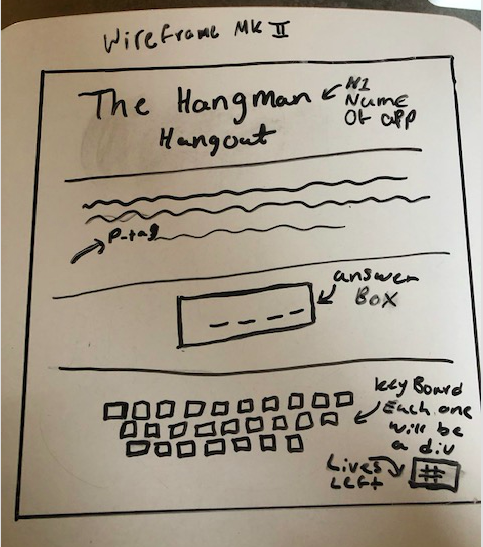 WireFrame MK II
The Hangman
Hangout
H1
Name
Of app
P-tag
answer
Box
KeyBoard
Each one
will be
a div
Lives
Left
#